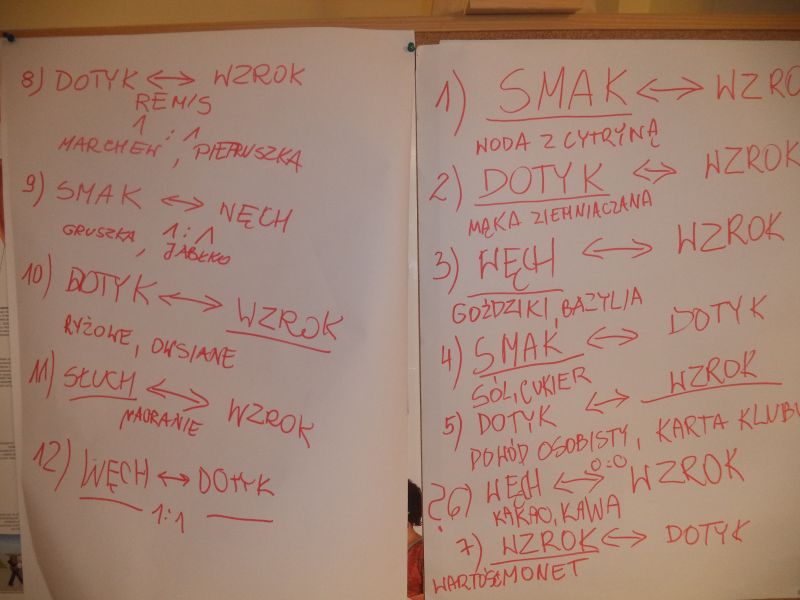 8) DOTYK ↔ WZROK
REMIS
1 : 1
MARCHEW, PIETRUSZKA
9) SMAK ↔ WĘCH
1 : 1
GRUSZKA, JABŁKO
10) DOTYK ↔ WZROK
RYŻOWE, OWSIANE
11) SŁUCH ↔ WZROK
NAGRANIE
12) WĘCH ↔ DOTYK
1:1
1) SMAK ↔ WZRO
WODA Z CYTRYNĄ
2) DOTYK ↔ WZROK
MĄKA ZIEMNIACZANA
3) WĘCH ↔ WZROK
GOŹDZIKI, BAZYLIA
4) SMAK ↔ DOTYK
SÓL, CUKIER
5) DOTYK ↔ WZROK
DOWÓD OSOBISTY, KARTA KLUBU
?6) WĘCH ↔ WZROK
0:0
KAKAO, KAWA
7) WZROK ↔ DOTYK
WARTOŚĆ MONET